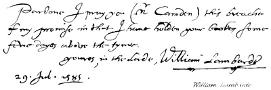 Pardone I pray yo (Mr Camden) this breache
of my promise in that I have holden your bookes some
fewe dayes above the tyme.
yowres in the Lorde, William Lambard
29. Jul. 1585.
William Lambarde